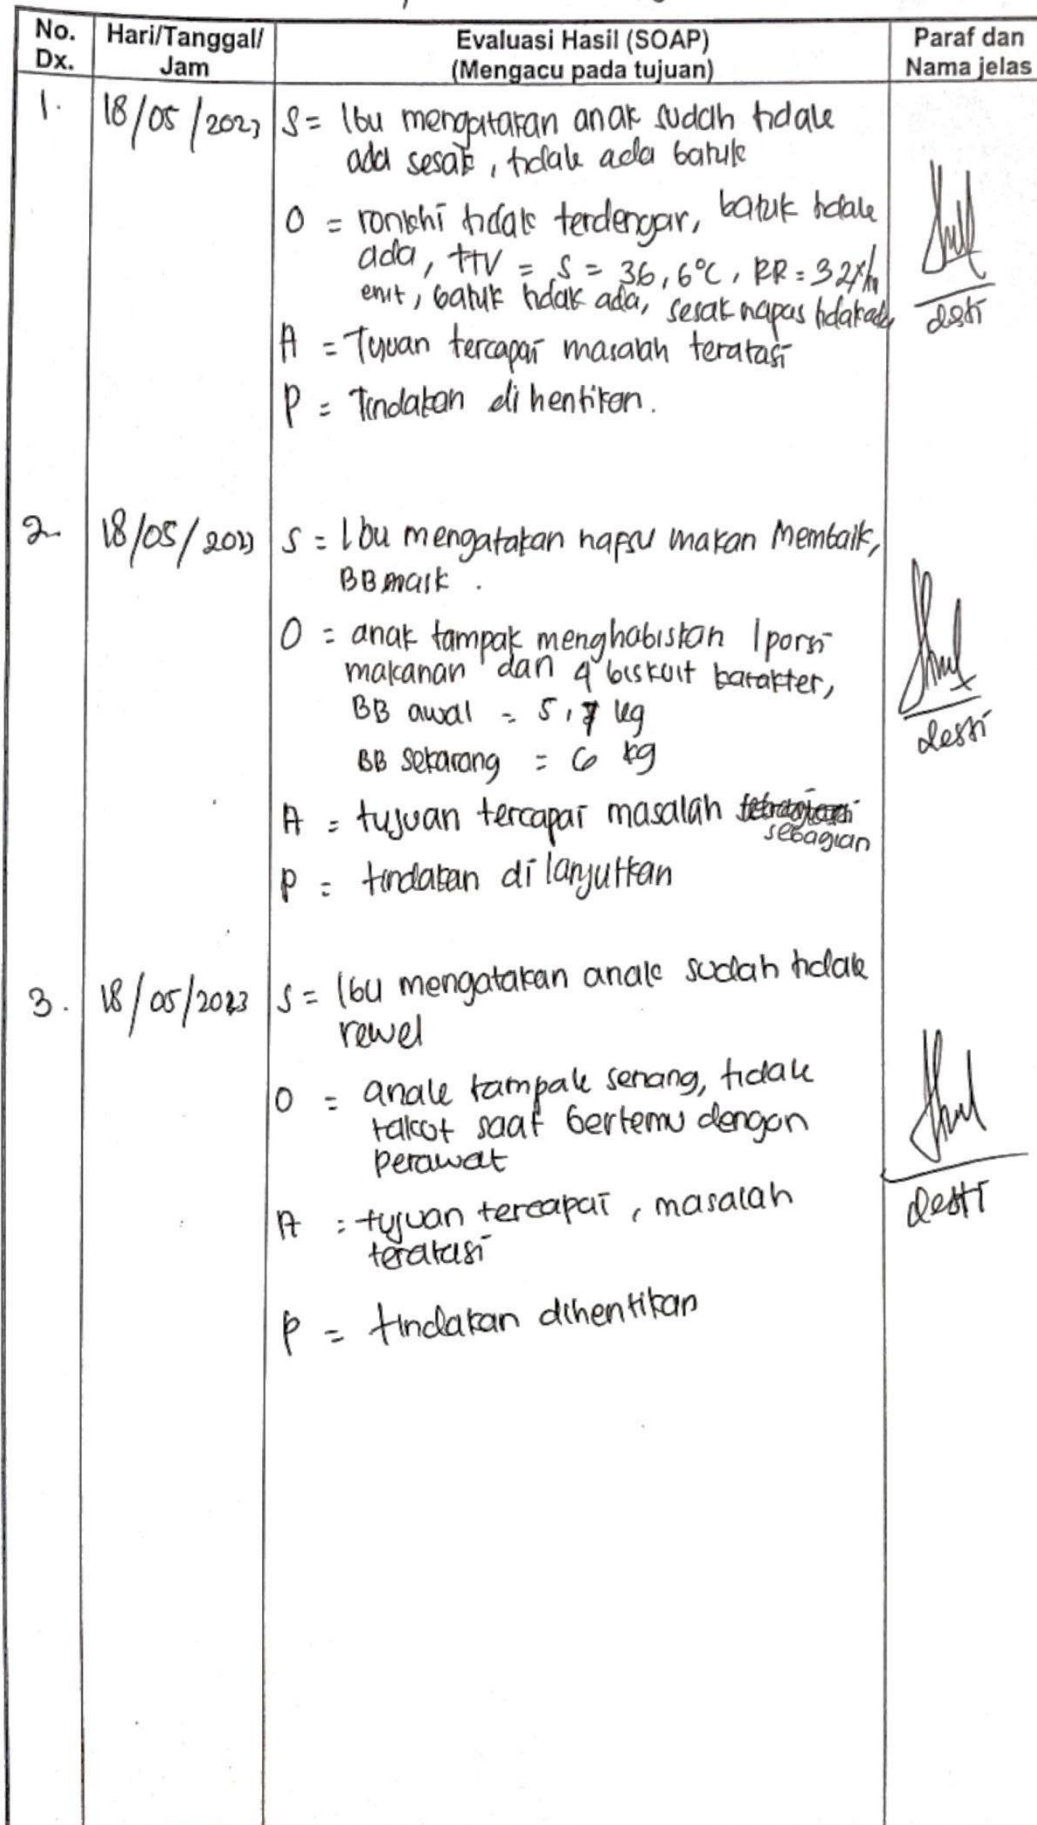 No. Dx. Hari/Tanggal/ Jam Evaluasi Hasil (SOAP) (Mengacu pada tujuan) Paraf dan Nama jelas
1. 18/05/2023 S = Ibu mengatakan anak sudah tidak
ada sesak, tidak ada batuk
O = ronkhi tidak terdengar, batuk tidak
ada, TTV = S = 36,6°C, RR = 32x/m
enit, batuk tidak ada, sesak napas tidak ada
desti
A = Tujuan tercapai masalah teratasi
P = Tindakan dihentikan.
2. 18/05/2023 S = Ibu mengatakan napsu makan membaik,
BB naik.
O = anak tampak menghabiskan 1 porsi
makanan dan 4 biskuit karakter,
BB awal = 5,7 kg
BB sekarang = 6 kg
desti
A = tujuan tercapai masalah
sebagian
P = tindakan di lanjutkan
3. 18/05/2023 S = Ibu mengatakan anak sudah tidak
rewel
O = anak tampak senang, tidak
takut saat bertemu dengan
perawat
desti
A = tujuan tercapai, masalah
teratasi
P = tindakan dihentikan